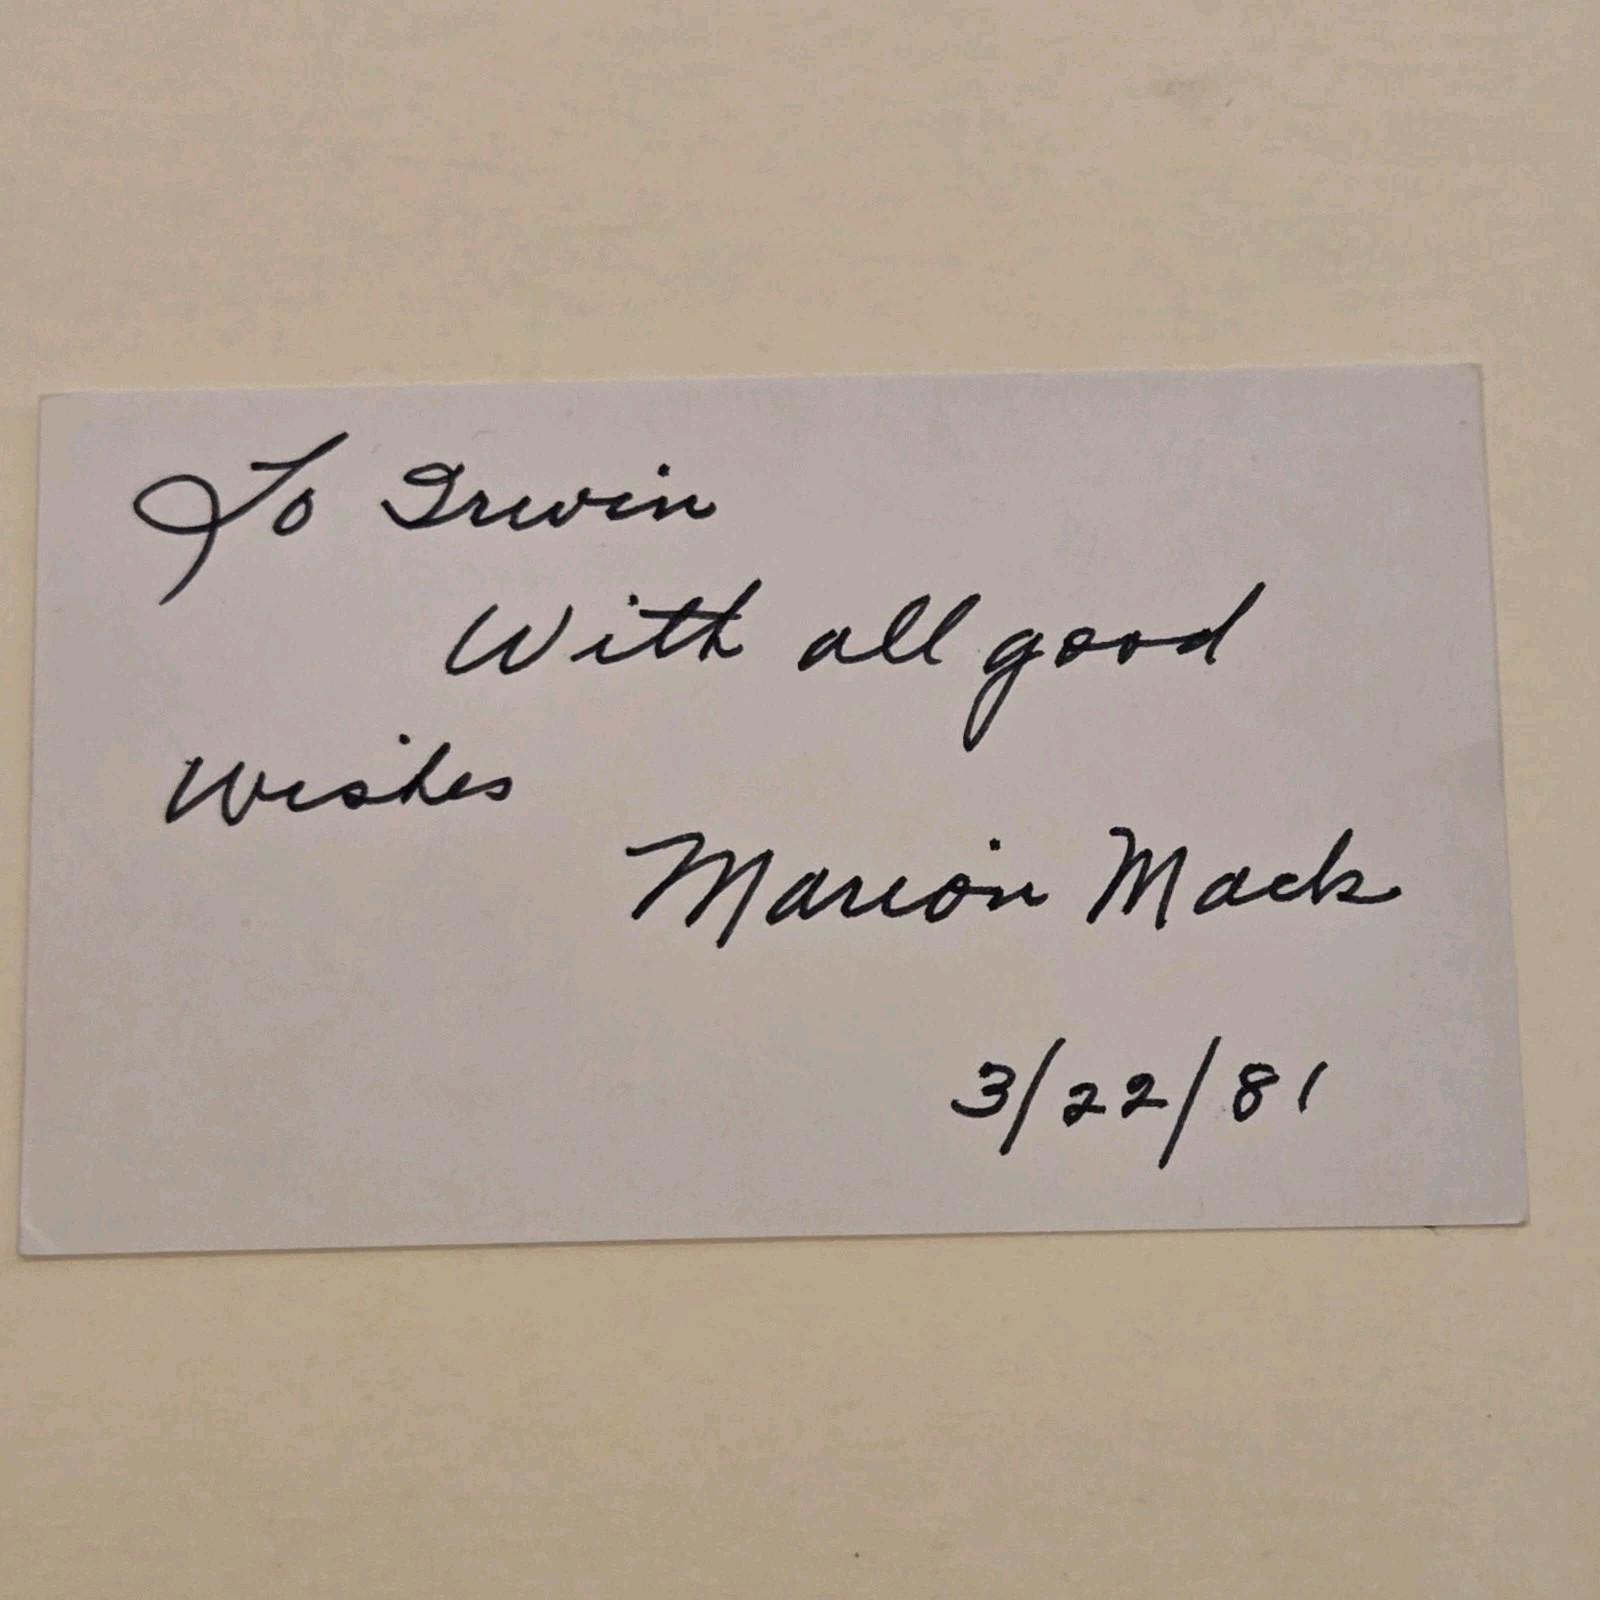 To Irwin
With all good
Wishes
Marion Mack
3/22/81